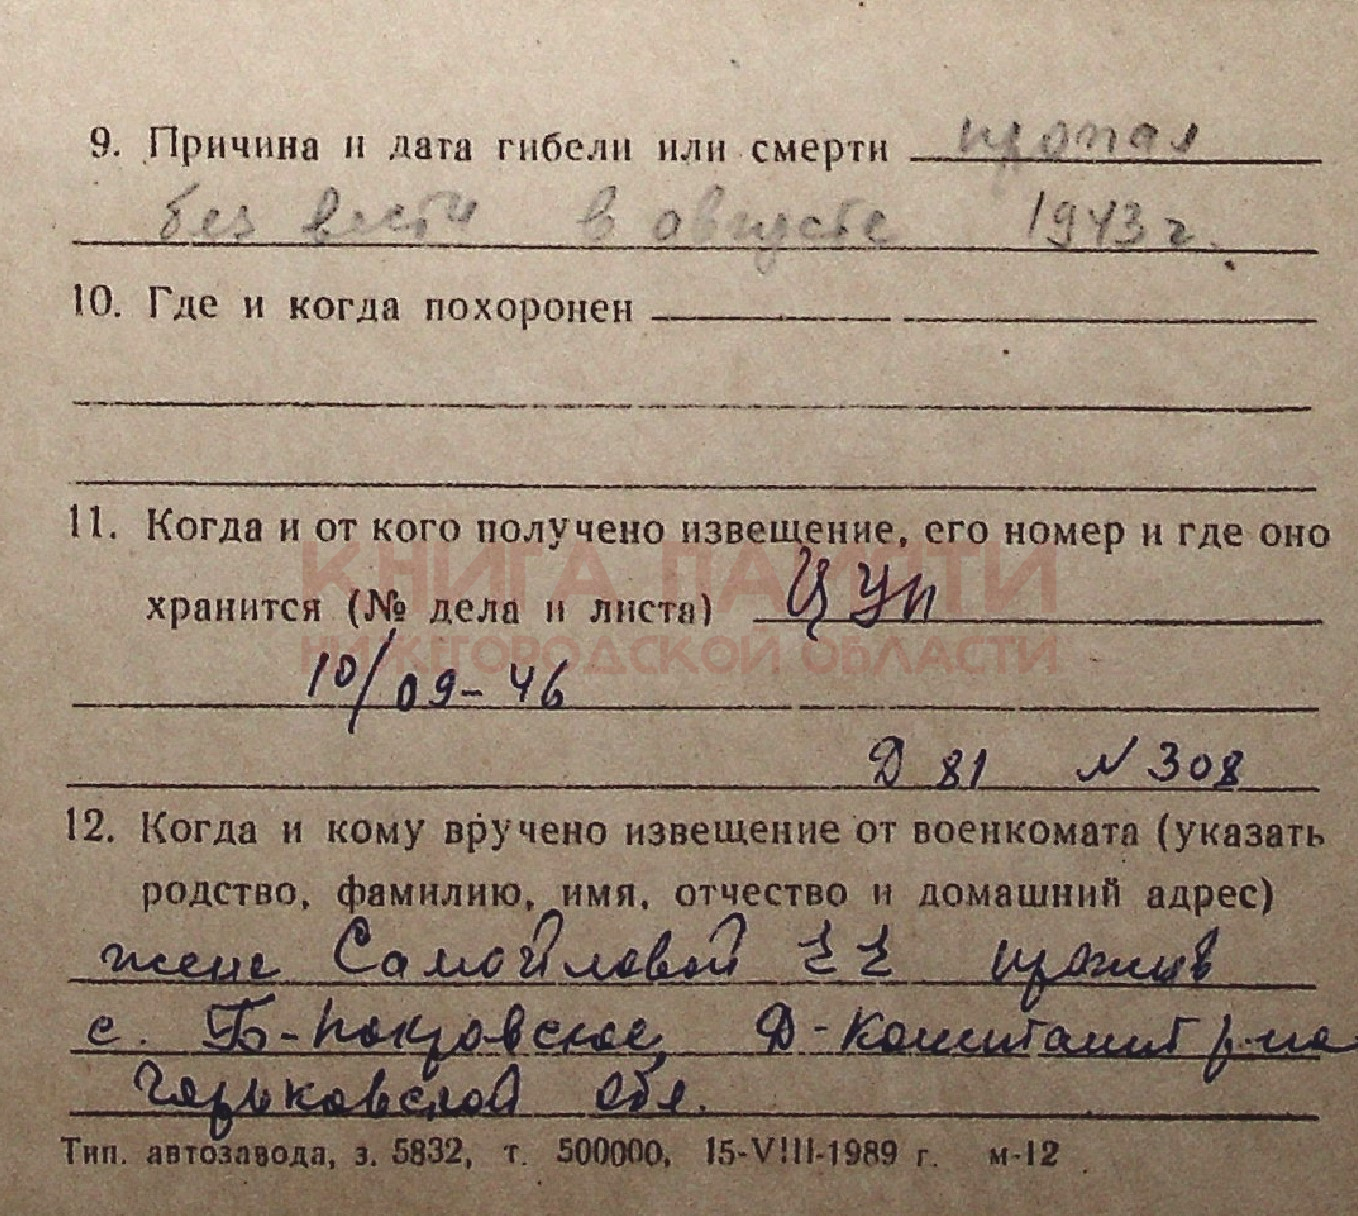 9. Причина и дата гибели или смерти пропал
без вести в августе 1943 г.
10. Где и когда похоронен
11. Когда и от кого получено извещение, его номер и где оно
КНИГА ПАМЯТИ
хранится (№ дела и листа) ЦУП
НИЖЕГОРОДСКОЙ ОБЛАСТИ
10/09-46
Д 81 N 308
12. Когда и кому вручено извещение от военкомата (указать
родство, фамилию, имя, отчество и домашний адрес)
жене Самойловой Е Е прожив
с. Б-Покровское, Д-Константт р-на
Горьковской обл.
Тип. автозавода, з. 5832, т. 500000, 15-VIII-1989 г. м-12